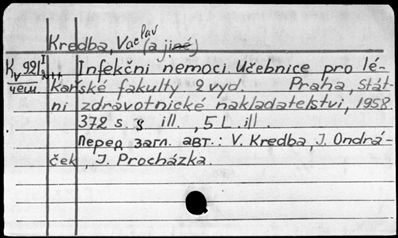 Kredba, Vaclav (a jiné)
Kv 92/I2 Infekční nemoci. Učebnice pro lé-
чеш. kařské fakulty 2 vyd. Praha, Stát-
ni zdravotnické nakladatelstvi, 1958
372 s. s ill., 5 L. ill.
Перед загл. авт.: V. Kredba, J. Ondrá-
ček, J. Procházka.